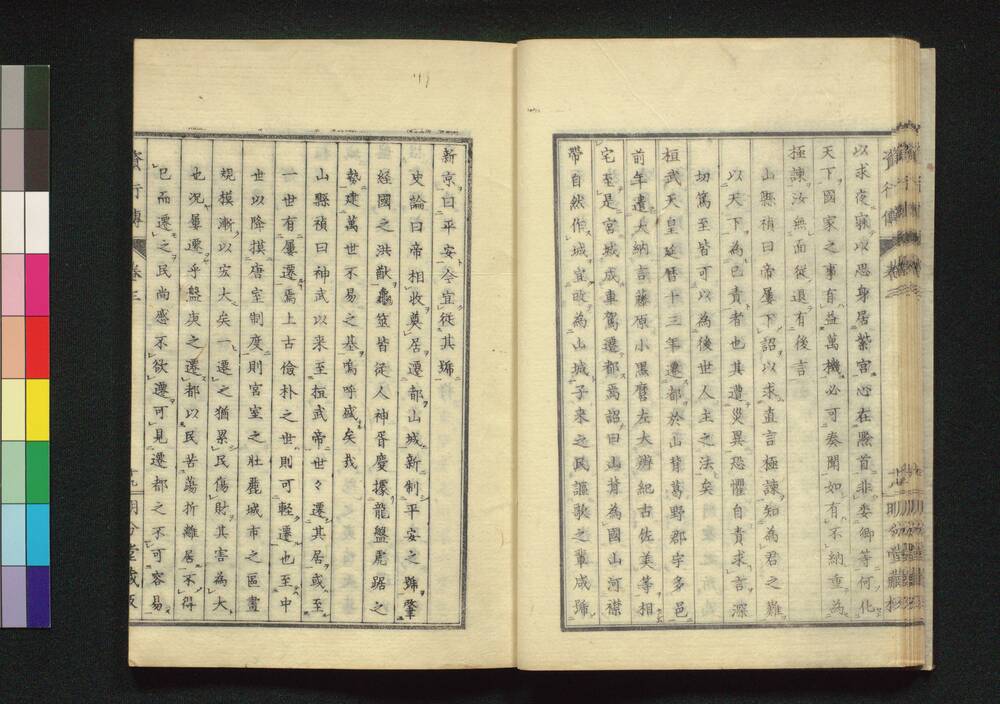 以求夜寐以思身居紫宮心在黔首非委卿等何化
天下國家之事有益萬機必可奏聞如有不納重為
極諫汝無面從退有後言
山縣禎曰帝屢下詔以求直言極諫知為君之難
以天下為已責者也其遭災異恐懼自責求言深
切篤至皆可以為後世人主之法矣
桓武天皇延曆十三年遷都於山背葛野郡宇多邑
前年遣大納言藤原小黒麿左大辨紀古佐美等相
宅至是宮城成車駕遷都焉詔曰山背為國山河襟
帶自然作城宜改為山城子來之民謳歌之輩咸號
新京曰平安今宜從其號
史論曰帝相收奠居遷都山城新制平安之號肇
經國之洪猷龜筮皆從人神胥慶據龍盤虎踞之
勢建萬世不易之基嗚呼盛矣哉
山縣禎曰神武以来至桓武帝世々遷其居或至
一世有屢遷焉上古儉朴之世則可輕遷也至中
世以降摸唐室制度則宮室之壯麗城市之區畫
規摸漸以宏大矣一遷之猶累民傷財其害為大
也況屢遷乎盤庚之遷都以民苦蕩折離居不得
已而遷之民尚感不欲遷可見遷都之不可容易
卷三